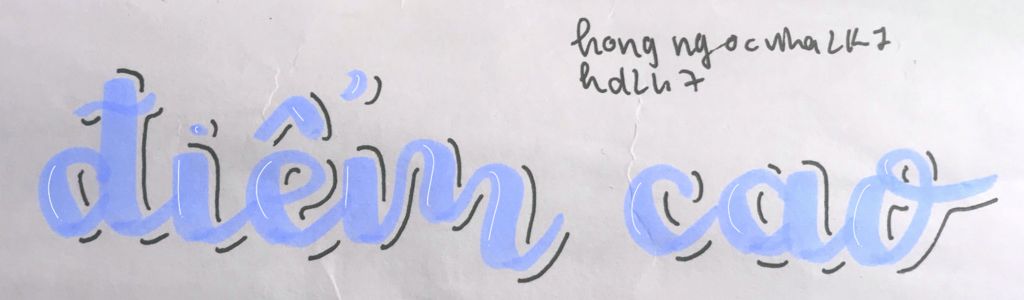 hongngocnha2k7
hd2k7
điểm cao